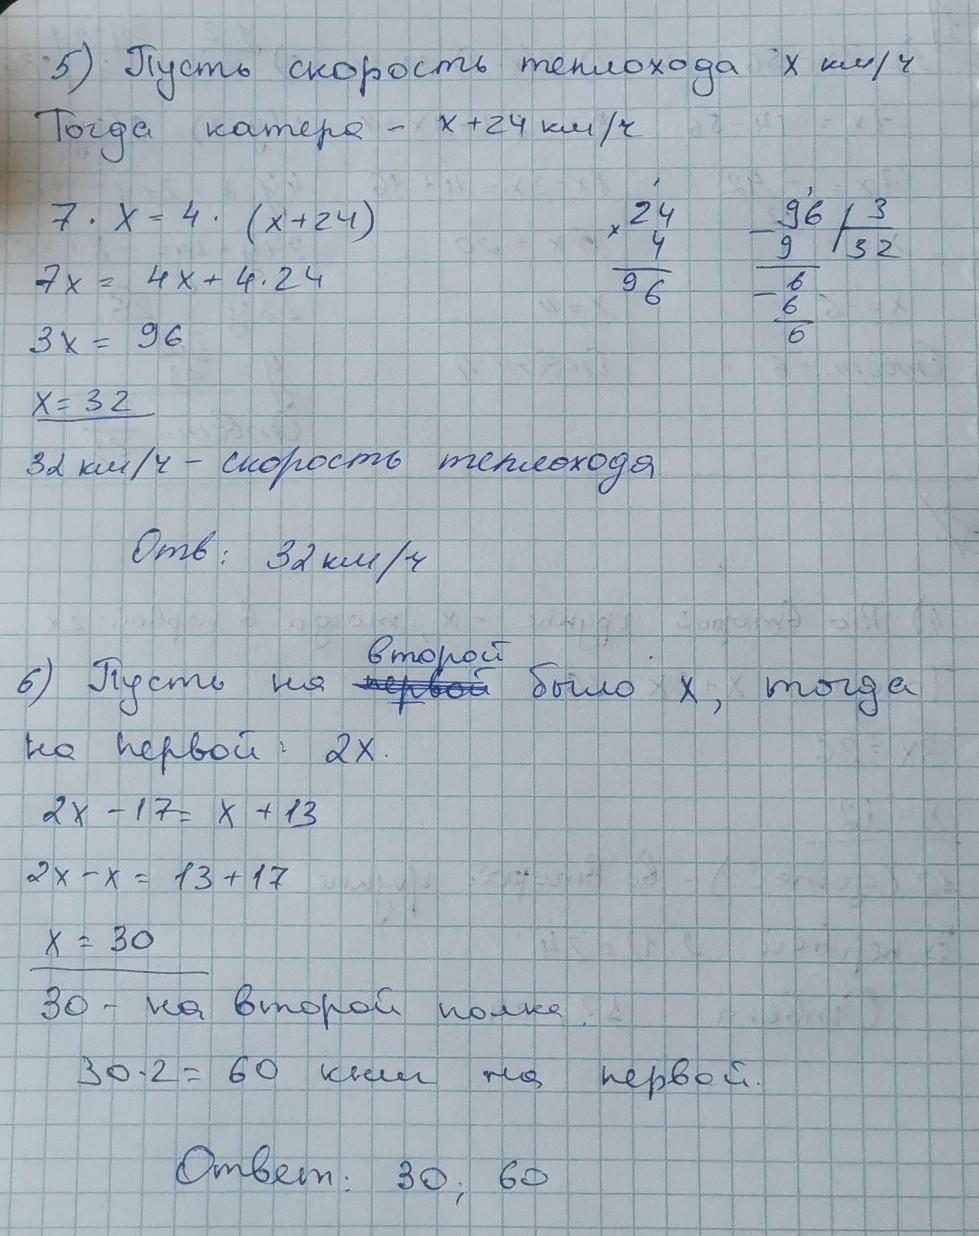 5) Пусть скорость теплохода х км/ч
Тогда катера - х+24 км/ч
7 · х = 4 · (х+24)
7х = 4х + 4.24
3х = 96
х = 32
× 24
4
96
- 96 3
9 32
- 6
6
6
32 км/ч - скорость теплохода
Отв: 32 км/ч
второй
6) Пусть на первой было х, тогда
на первой: 2х.
2х - 17 = х + 13
2х - х = 13 + 17
х = 30
30 - на второй полке.
30·2 = 60 книг на первой.
Ответ: 30; 60